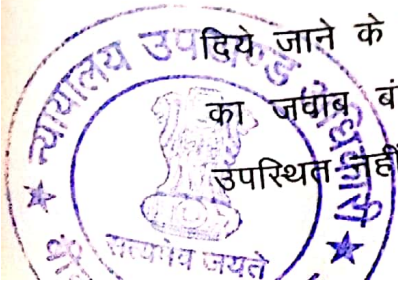 दिये जाने के
का जवाब बं
उपस्थित नहीं
न्यायालय उपखण्ड अधिकारी
सत्यमेव जयते